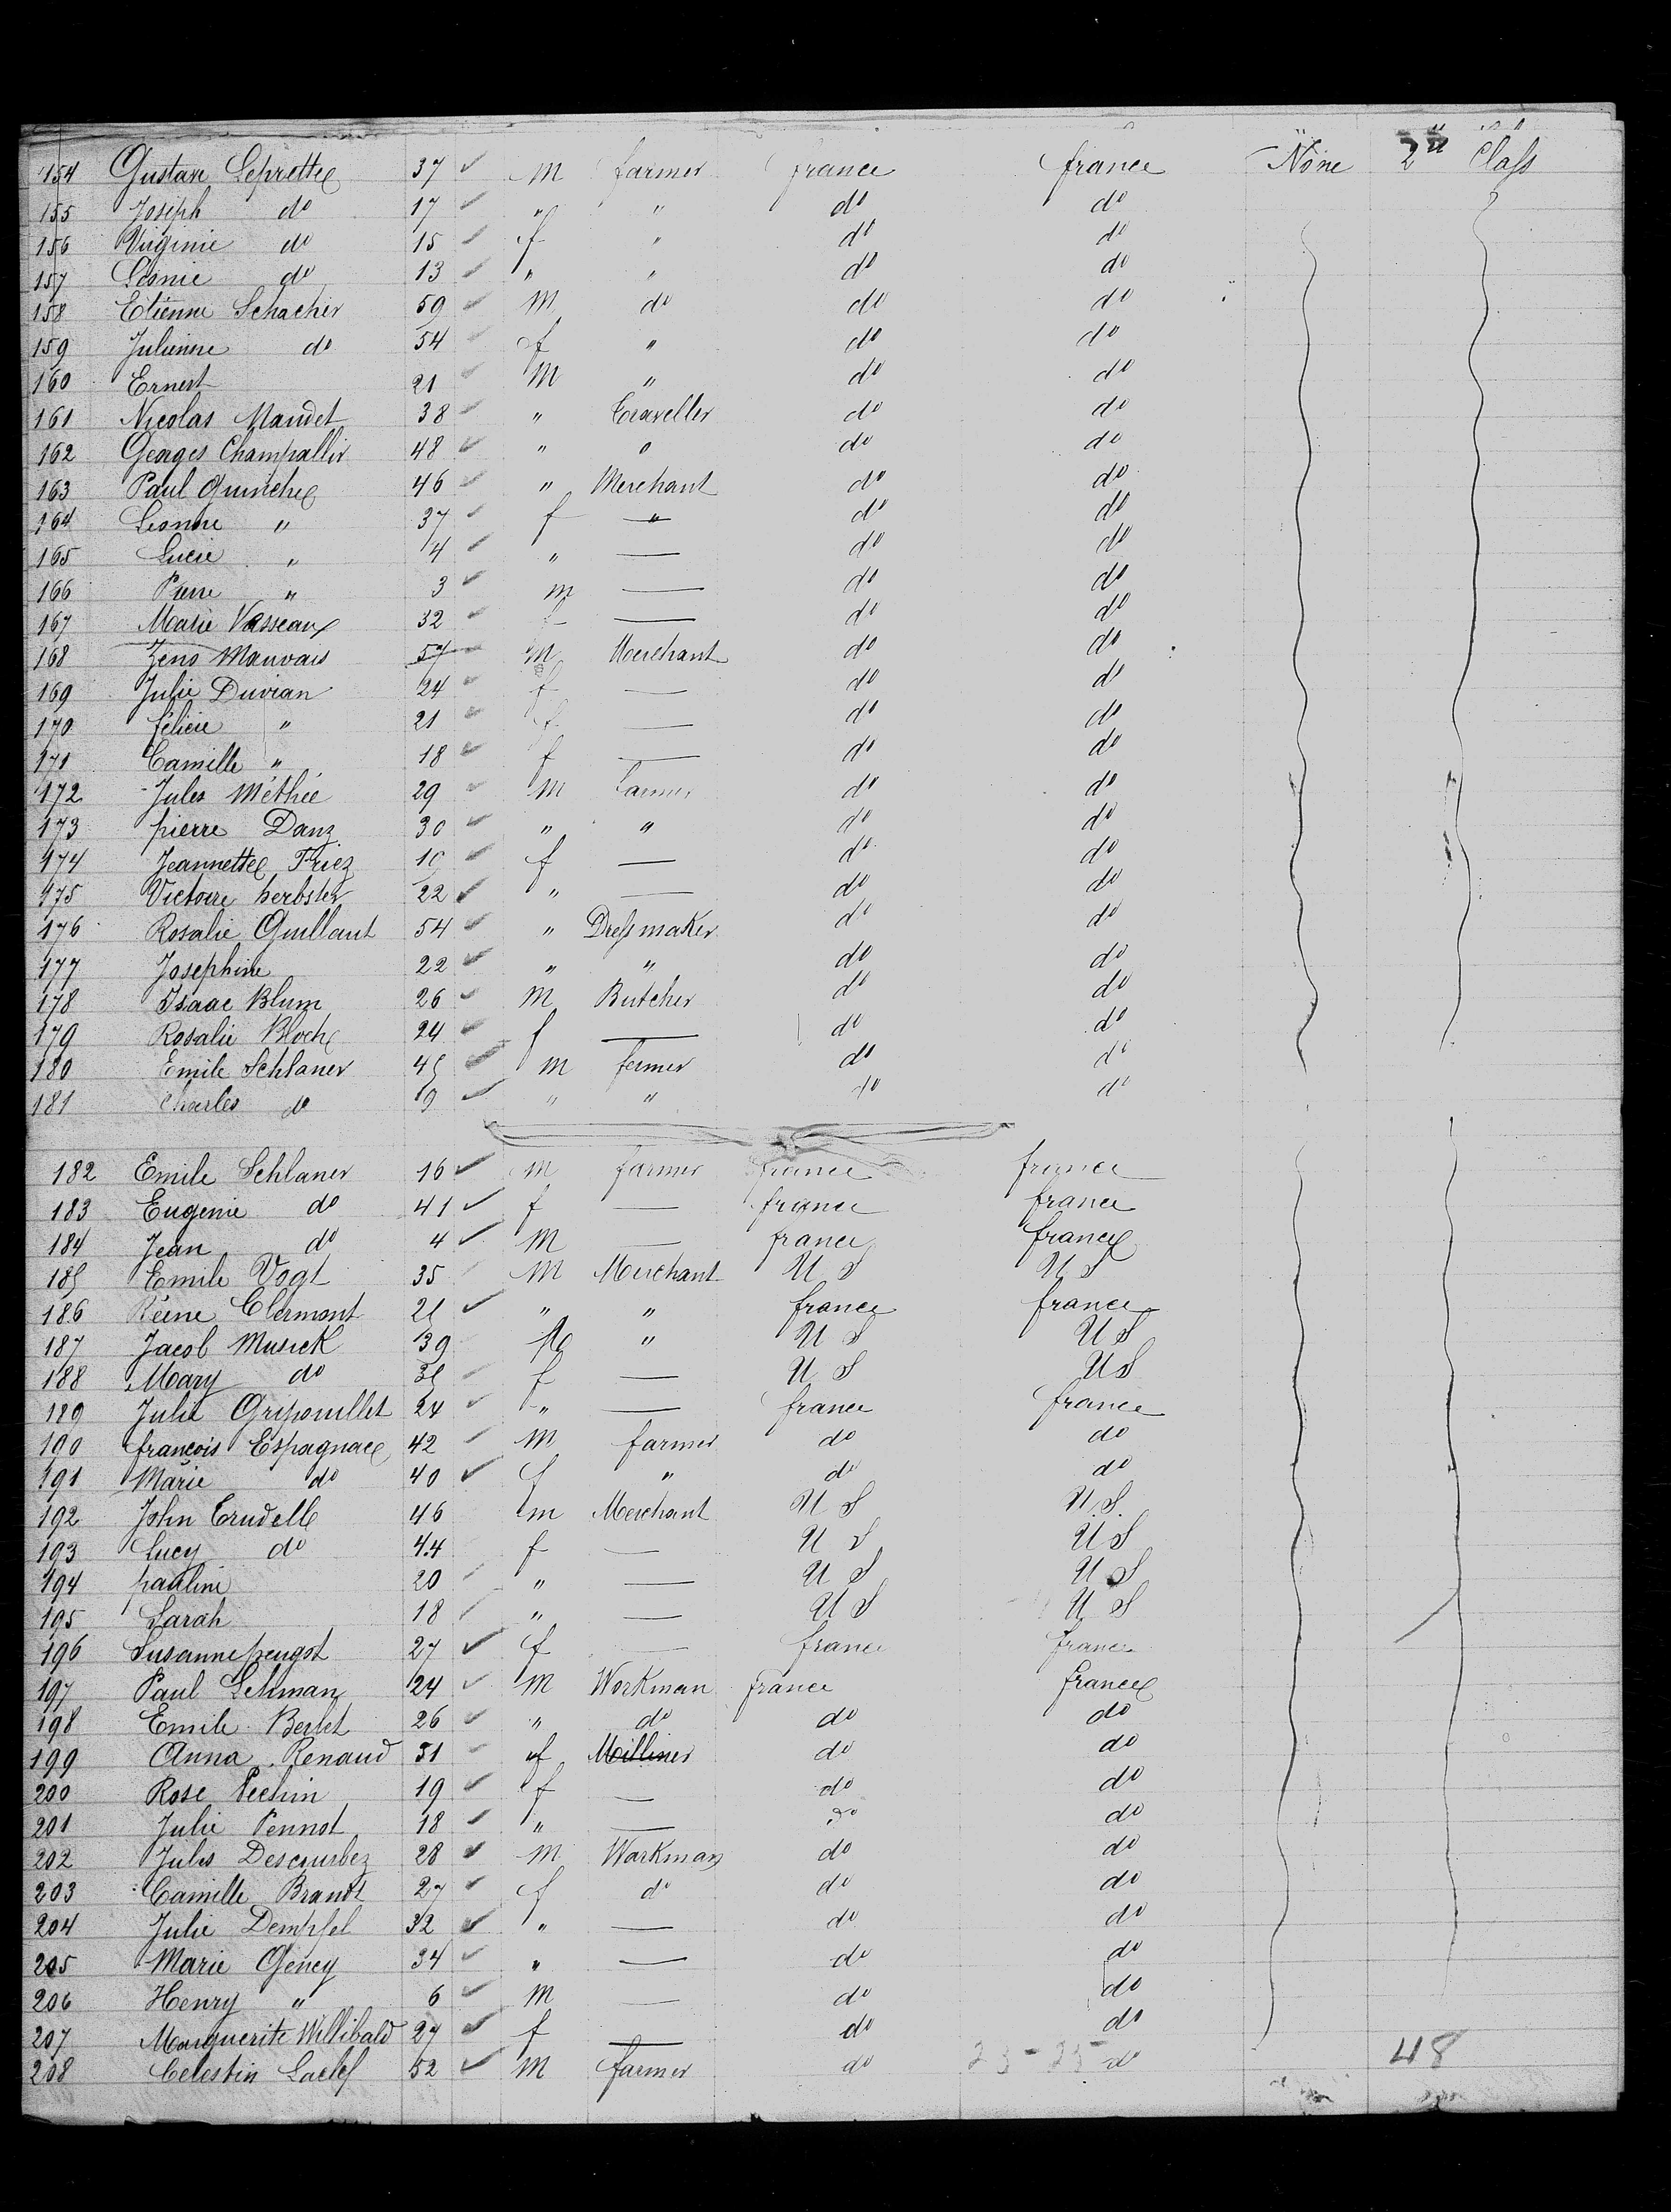 154 Gustave Leprettre 37 ✓ M farmer france france None 2d Class
155 Joseph do 17 ✓ " " do do
156 Virginie do 15 ✓ f " do do
157 Leonie do 13 ✓ " " do do
158 Etienne Schacher 59 ✓ M do do do
159 Julienne do 54 ✓ f " do do
160 Ernest 21 ✓ M " do do
161 Nicolas Maudet 38 ✓ " Traveller do do
162 Georges Champallir 48 ✓ " " do do
163 Paul Quinche 46 ✓ " Merchant do do
164 Leonore " 37 ✓ f " do do
165 Lucie " 4 ✓ " — do do
166 Pierre " 3 ✓ m — do do
167 Marie Vasseaux 32 ✓ f — do do
168 Zeno Mauvais 57 M Merchant do do
169 Julie Duvian 24 ✓ f — do do
170 félicie " 21 ✓ f — do do
171 Camille " 18 ✓ f — do do
172 Jules Méthée 29 ✓ M farmer do do
173 pierre Danz 30 ✓ " " do do
174 Jeannette Friez 10 ✓ f — do do
175 Victoire herbster 22 ✓ " — do do
176 Rosalie Guillaut 54 ✓ " Dressmaker do do
177 Josephine 22 ✓ " " do do
178 Isaac Blum 26 ✓ M Butcher do do
179 Rosalie Bloch 24 ✓ f — do do
180 Emile Schlaner 45 ✓ m fermer do do
181 Charles do 9 ✓ " " do do
182 Emile Schlaner 16 ✓ m farmer france france
183 Eugenie do 41 ✓ f — france france
184 Jean do 4 ✓ M — france france
185 Emile Vogt 35 M Merchant U S U S
186 Réene Clermont 21 ✓ " " france france
187 Jacob Musick 39 M " U S U S
188 Mary do f — U S U S
189 Julie Gripouillet 24 ✓ " — france france
190 françois Espagnac 42 ✓ M farmer do do
191 Marie do 40 ✓ f " do do
192 John Trudell 46 m Merchant U S U.S.
193 Lucy do 44 f — U S U S
194 pauline 20 ✓ " — U S U S
195 Sarah 18 ✓ " — U S U S
196 Susanne peugot 27 ✓ f — france france
197 Paul Lehman 24 ✓ M Workman france france
198 Emile Berlet 26 ✓ " do do do
199 Anna Renaud 31 ✓ f Milliner do do
200 Rose Pechin 19 ✓ f — do do
201 Julie Pennot 18 ✓ " — do do
202 Jules Descourbez 28 ✓ M Workman do do
203 Camille Brandt 27 ✓ f do do do
204 Julie Dempfel 32 ✓ " — do do
205 Marie Geney 34 ✓ " — do do
206 Henry " 6 ✓ M — do do
207 Marguerite Willibald 27 ✓ f — do do
208 Celestin 52 ✓ M farmer do 23-25 do 48